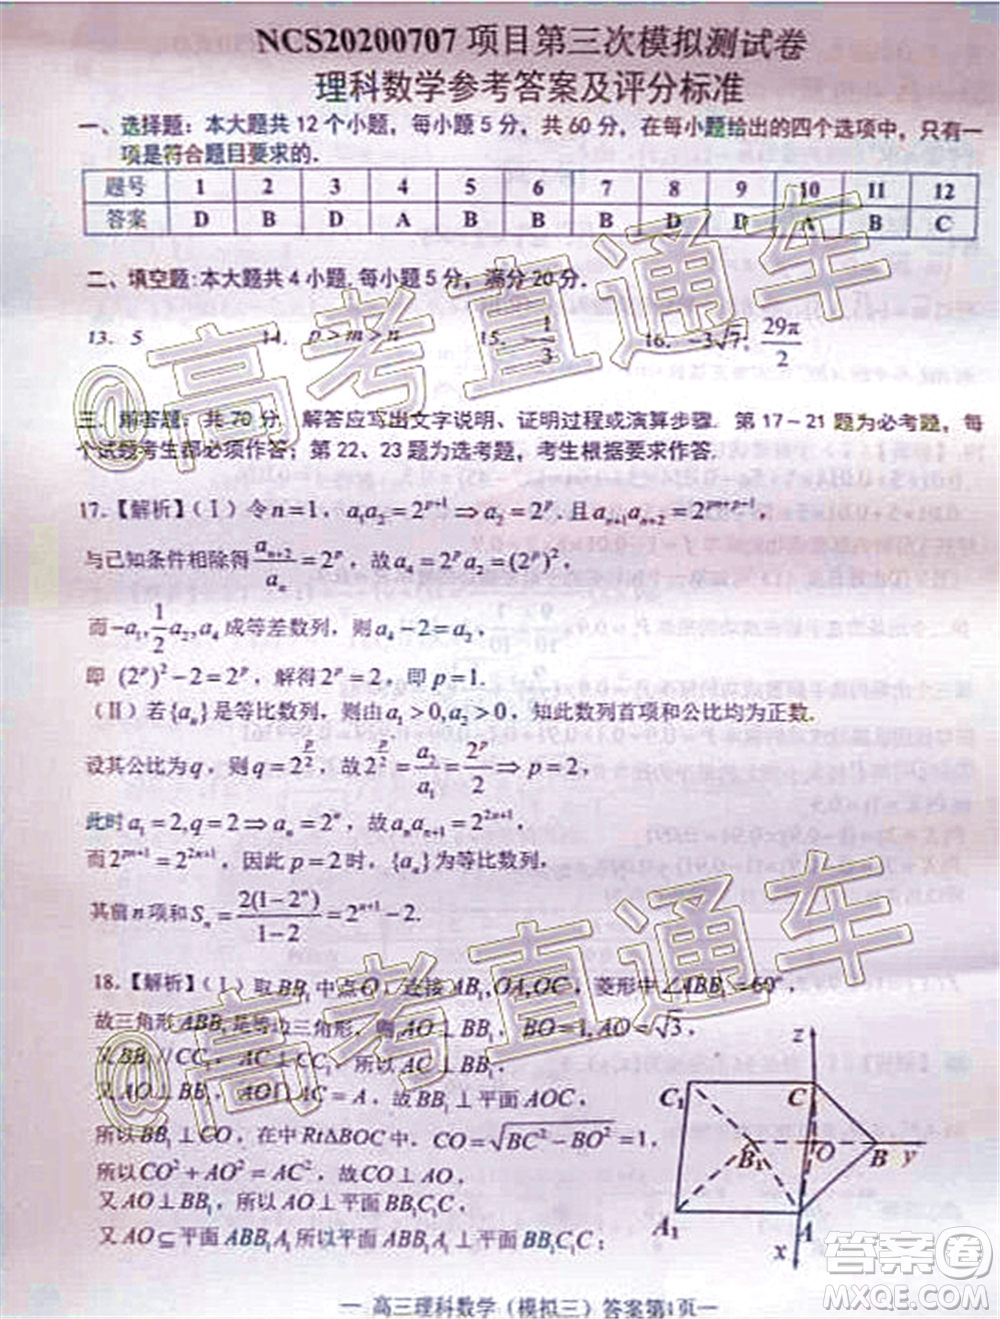 NCS20200707 项目第三次模拟测试卷
理科数学参考答案及评分标准
一、选择题：本大题共 12 个小题，每小题 5 分，共 60 分，在每小题给出的四个选项中，只有一
项是符合题目要求的．
题号 1 2 3 4 5 6 7 8 9 10 11 12
答案 D B D A B B B D D A B C
二、填空题:本大题共 4 小题,每小题 5 分，满分 20 分．
13. 5 14. p>m>n 15. -1/3 16. -3√7; 29π/2
三、解答题：共 70 分．解答应写出文字说明、证明过程或演算步骤．第 17～21 题为必考题，每
个试题考生都必须作答；第 22、23 题为选考题，考生根据要求作答．
17.【解析】(Ⅰ) 令 n=1, a₁a₂=2^(p+1) ⇒ a₂=2^p, 且 a_(n+1)a_(n+2)=2^(pn+p+1),
与已知条件相除得 a_(n+2)/a_n=2^p，故 a₄=2^p a₂=(2^p)²,
而 -a₁, 1/2 a₂, a₄ 成等差数列，则 a₄-2=a₂,
即 (2^p)²-2=2^p，解得 2^p=2，即 p=1.
(Ⅱ) 若{a_n}是等比数列，则由 a₁>0, a₂>0，知此数列首项和公比均为正数.
设其公比为 q，则 q=2^(p/2)，故 2^(p/2)=a₂/a₁=2^p/2 ⇒ p=2,
此时 a₁=2, q=2 ⇒ a_n=2^n，故 a_n a_(n+1)=2^(2n+1),
而 2^(pn+1)=2^(2n+1)，因此 p=2 时，{a_n}为等比数列，
其前 n 项和 S_n=2(1-2^n)/(1-2)=2^(n+1)-2.
18.【解析】(Ⅰ) 取 BB₁ 中点 O，连接 AB₁,OA,OC，菱形中∠ABB₁=60°，
故三角形 ABB₁ 是等边三角形，则 AO⊥BB₁，BO=1,AO=√3，
又 BB₁//CC₁，AC⊥CC₁，所以 AC⊥BB₁，
又 AO⊥BB₁，AO∩AC=A，故 BB₁⊥平面 AOC，
所以 BB₁⊥CO，在 Rt△BOC 中，CO=√(BC²-BO²)=1，
所以 CO²+AO²=AC²，故 CO⊥AO，
又 AO⊥BB₁，所以 AO⊥平面 BB₁C₁C，
又 AO⊆平面 ABB₁A₁，所以平面 ABB₁A₁⊥平面 BB₁C₁C；
z
C₁ C
B₁ O B y
A₁ A
x
— 高三理科数学（模拟三）答案第1页—
@高考直通车
@高考直通车
答案卷